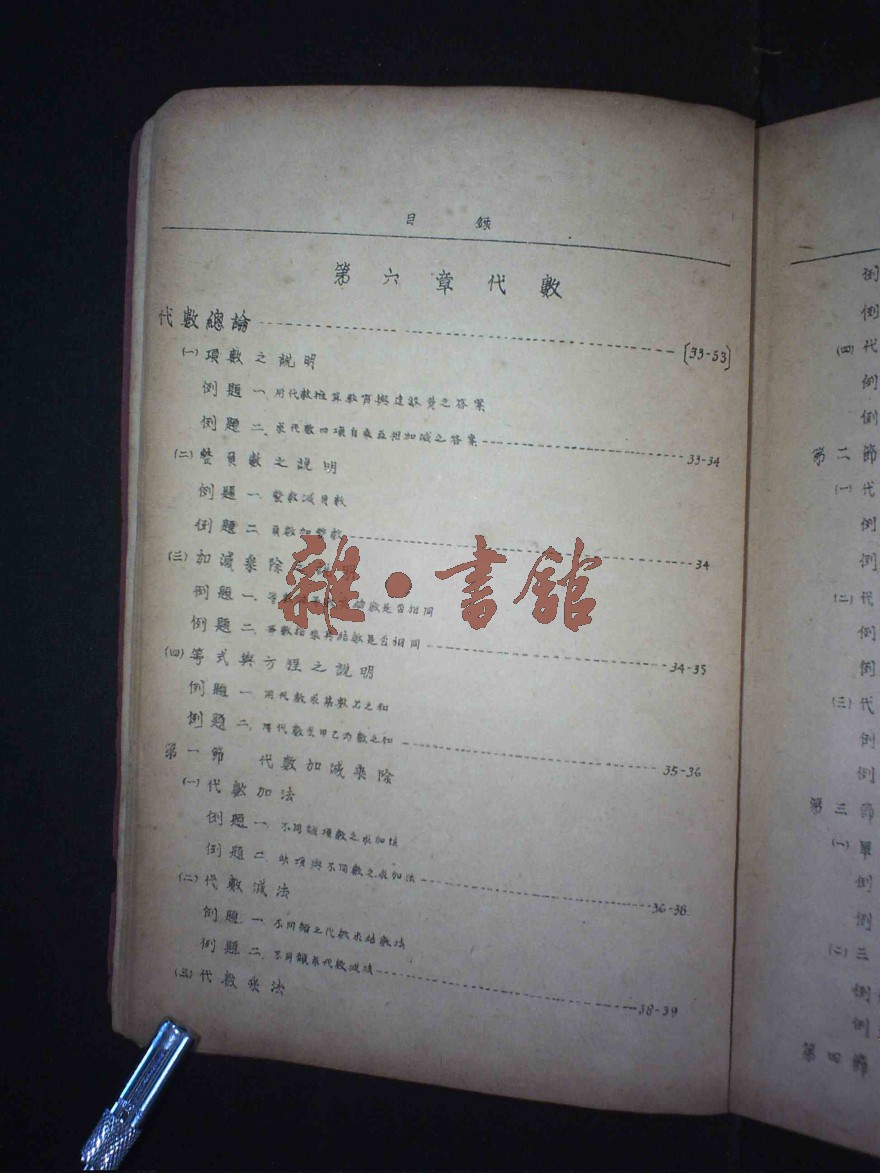 目 錄
第六章代數
代數總論 [33-53]
(一)項數之說明
例題一、用代數推算教育與建設費之答案
例題二、求代數四項自乘互相加減之答案 33-34
(二)整負數之說明
例題一、整數減負數
例題二、負數加整數 34
(三)加減乘除之說明
例題一、數是否相同
例題二、等數相乘其結數是否相同 34-35
(四)等式與方程之說明
例題一、用代數求某數兄之和
例題二、用代數求甲乙為數之和 35-36
第一節 代數加減乘除
(一)代數加法
例題一、不同類項數之求加法
例題二、缺項與不同數之求加法 36-38
(二)代數減法
例題一、不同類之代數求結數法
例題二、不同類求代數減法 38-39
(三)代數乘法
雜·書舘
例
例
(四)代
例
例
第二節
(一)代
例
例
(二)代
例
例
(三)代
例
例
第三節
(一)單
例
例
(二)三
例
例
第四節